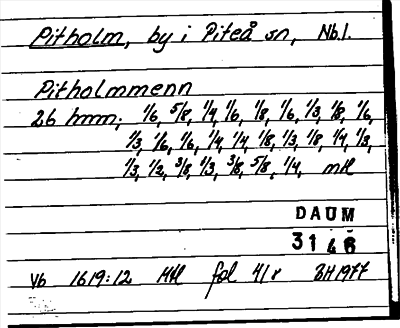 Pitholm, by i Piteå sn, Nb.l.
Pitholmmenn
26 hmm; 1/6, 5/8, 1/4, 1/6, 1/8, 1/6, 1/3, 1/8, 1/6,
1/3, 1/6, 1/6, 1/4, 1/4, 1/8, 1/3, 1/8, 1/4, 1/3,
1/3, 1/2, 3/8, 1/3, 3/8, 5/8, 1/4, mtl
DAUM
3146
Vb 1619:12 Mtl fol 41r BH1977